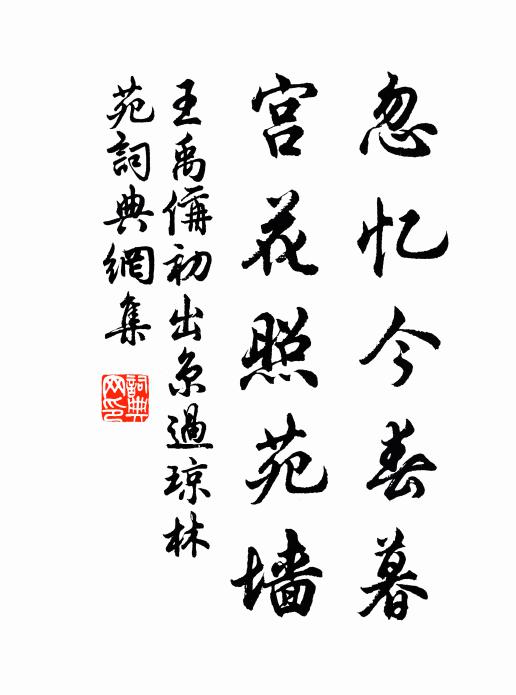 忽忆今春暮
宫花照苑墙
王禹偁初出京過琼林
苑詞典網集
詞典
网印